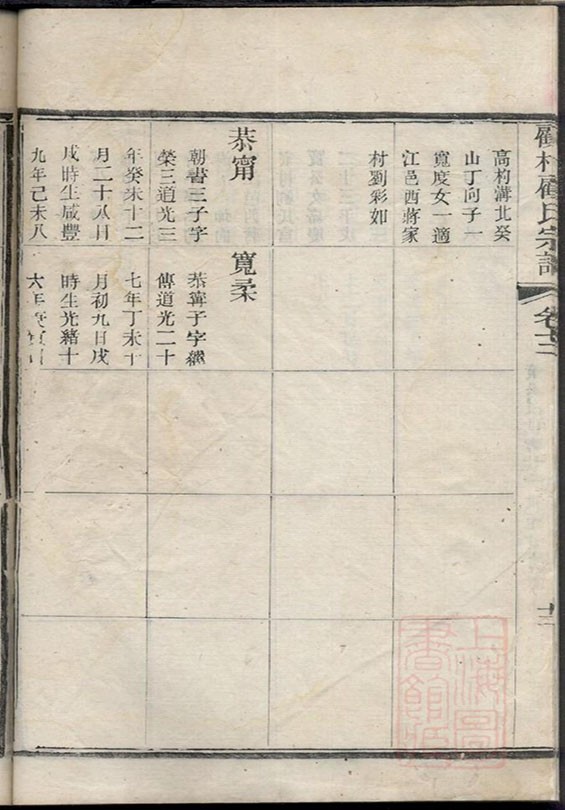 顧村顧氏宗譜
卷十二
十二
高杓溝北癸
山丁向子一
寬度女一適
江邑西蔣家
村劉彩如
恭甯
朝書三子字
榮三道光三
年癸未十二
月二十八日
戌時生咸豐
九年己未八
寬柔
恭甯子字繼
傳道光二十
七年丁未十
月初九日戌
時生光緒十
六年庚寅
上海圖書館藏